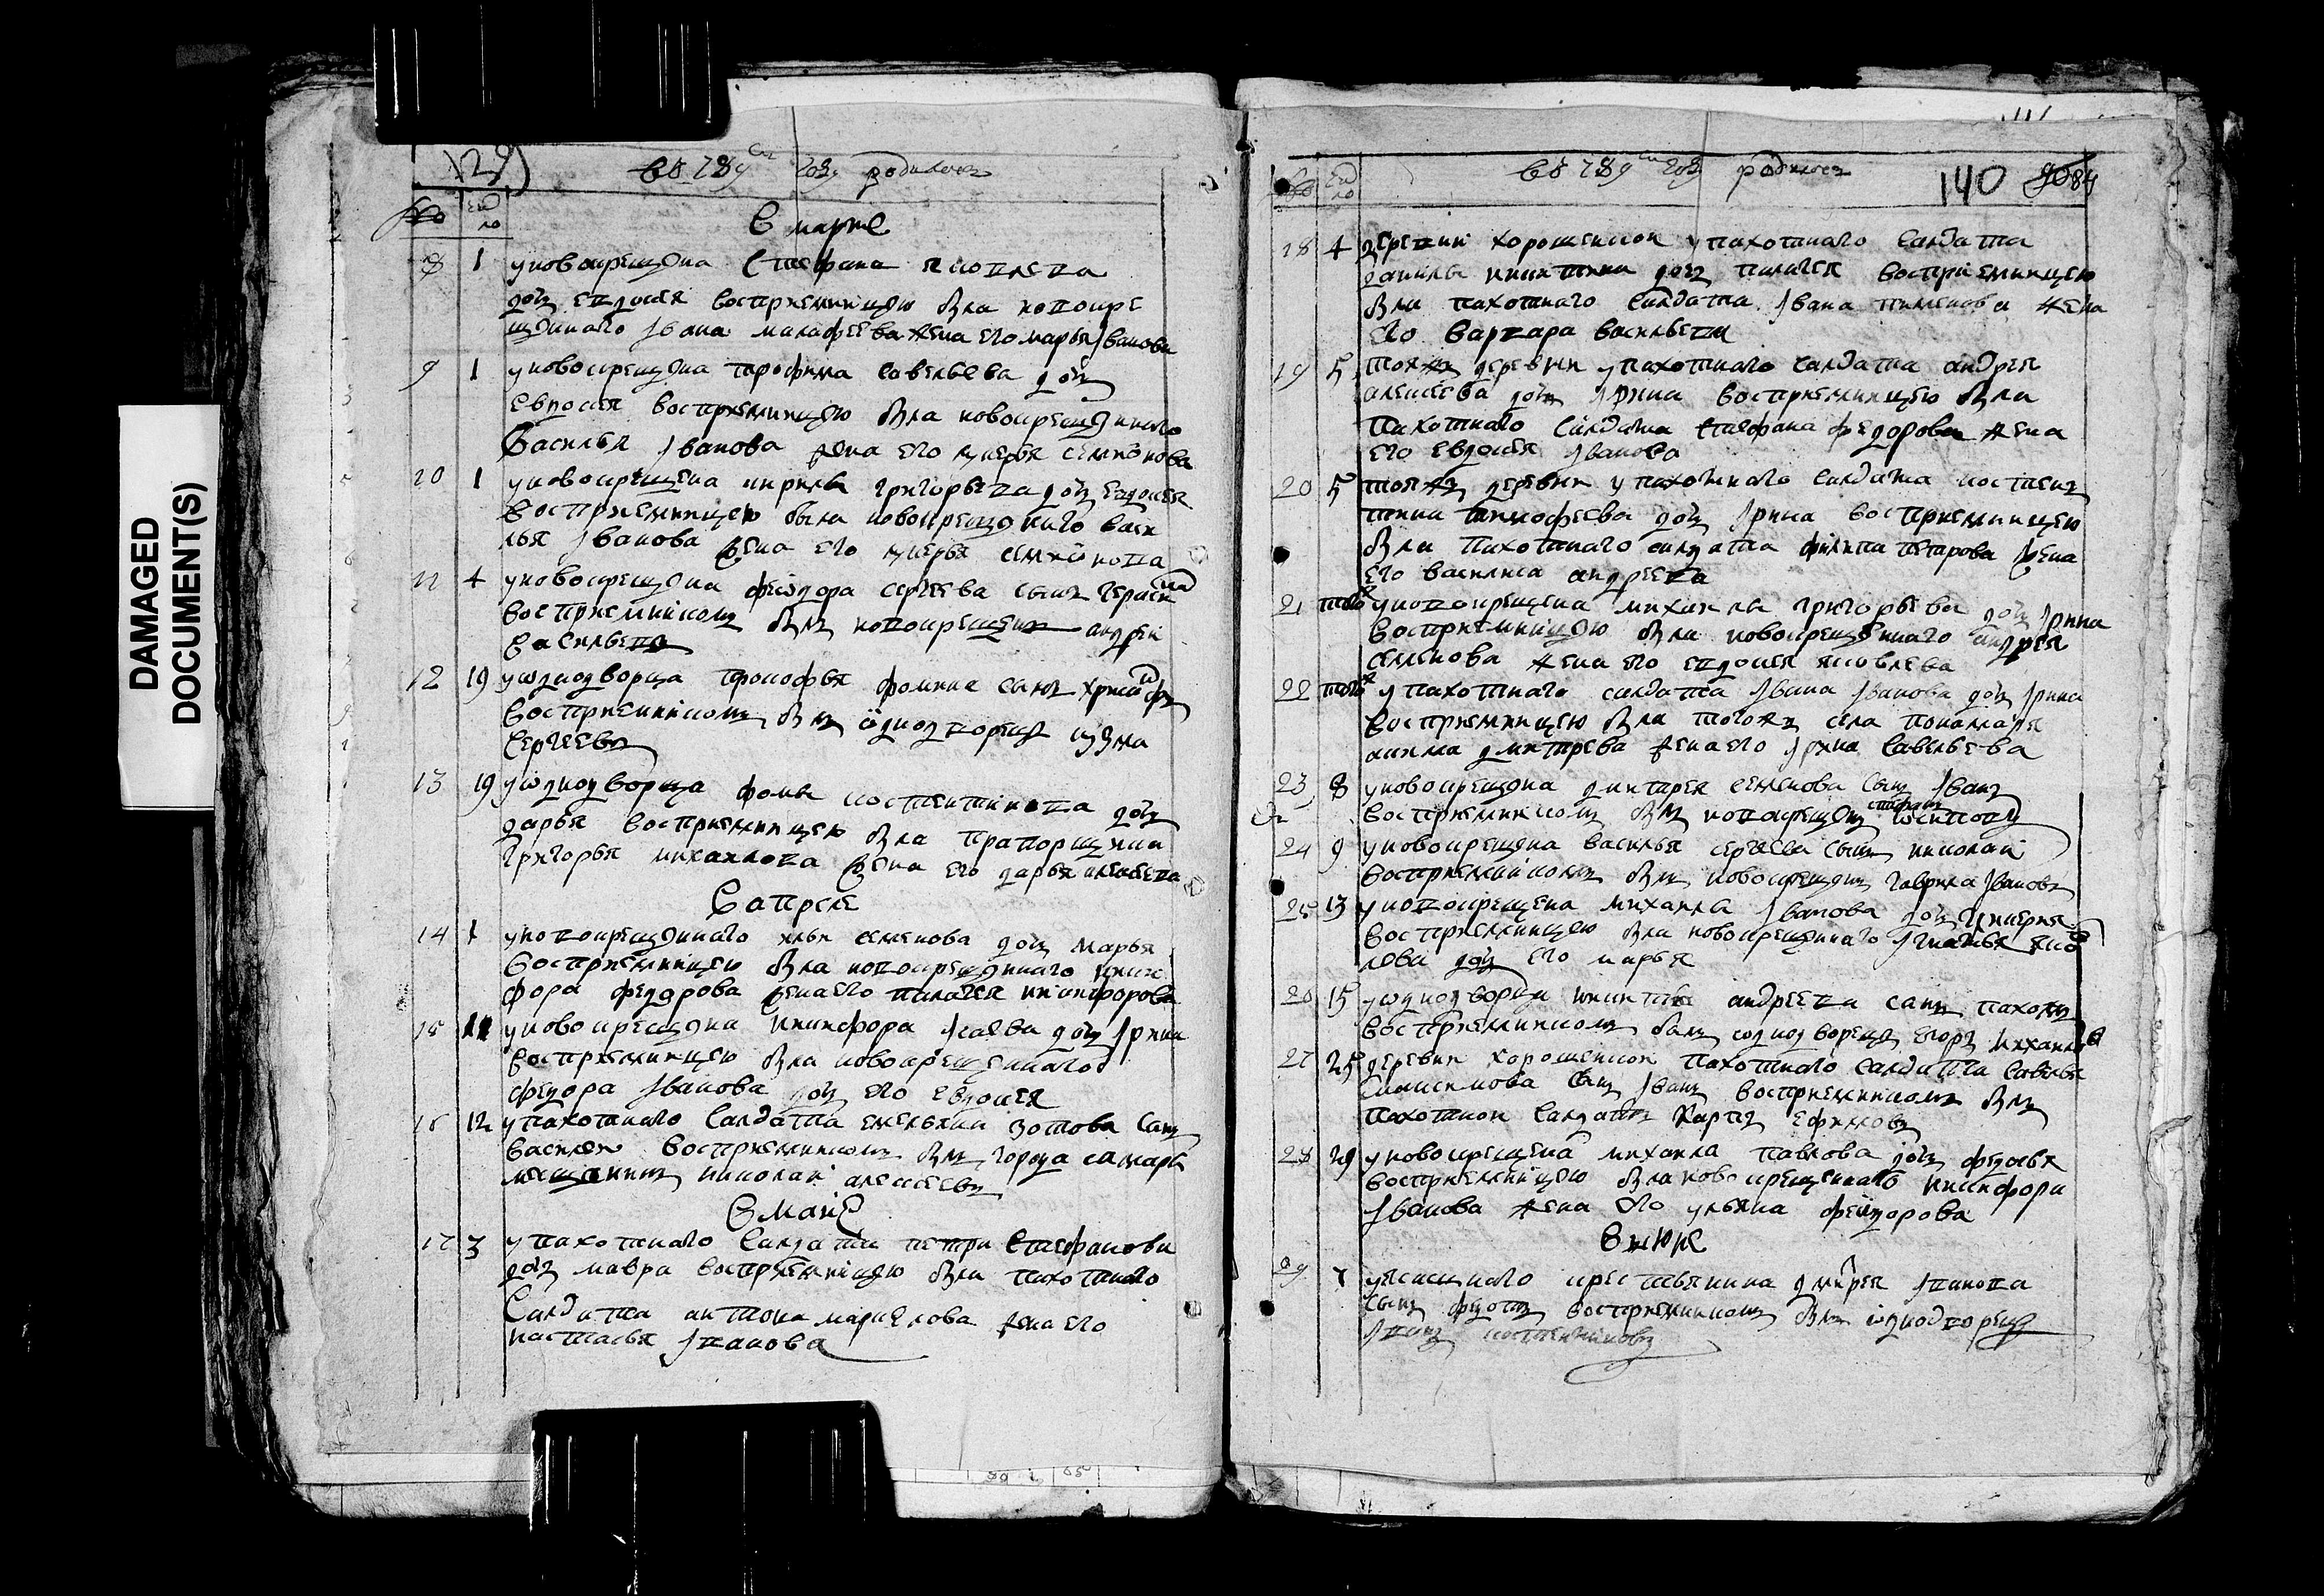 DAMAGED
DOCUMENT(S)
въ 789м году родились
№ число
в марте
8 1 у новокрещена Стефана Яковлева
дочь Евдокея восприемницею была новокре
щенаго Ивана Малафеева жена его Марья Иванова
9 1 у новокрещена Трофима Савельева дочь
Евдокея восприемницею была новокрещенного
Василья Иванова жена его семионова
10 1 у новокрещена Кирила Григорьева дочь Евдокея
восприемницею была новокрещенаго Васи
лья Иванова жена его семионова
11 4 у новокрещена Феодора Сергеева сынъ Герасим
восприемникомъ былъ новокрещенъ Андрей
Васильевъ
12 19 у однодворца Прокофья Фомина сынъ
восприемникомъ былъ однодворецъ Кузма
Сергеевъ
13 19 у однодворца Фомы Костентинова дочь
Дарья восприемницею была прапорщика
Григорья Михайлова жена его Дарья Алексеева
в апреле
14 1 у новокрещенного Ильи Семенова дочь Марья
восприемницею была новокрещеннаго Ники
фора Федорова жена его Палагея Никифорова
15 11 у новокрещена Никифора Исаева дочь Ирина
восприемницею была новокрещеннаго
Федора Иванова дочь его Евдокея
16 12 у пахотнаго салдата Емельяна Зотова сынъ
Василей восприемникомъ былъ города Самары
мещанинъ Николай Алексеевъ
в маие
17 3 у пахотнаго салдата Петра Стефанова
дочь Мавра восприемницею была пахотнаго
салдата Антона жена его
Настасья Иванова
въ 789м году родились
140 84
число
18 4 деревни Хорошенкой у пахотнаго салдата
Данилы Никитина дочь Палагея восприемницею
была пахотнаго салдата Ивана Пименова жена
его Варвара Васильева
19 5 тояжъ деревни у пахотнаго салдата Андрея
Алексеева дочь Ирина восприемницею была
пахотнаго салдата Стефана Федорова жена
его Евдокея Иванова
20 5 тояжъ деревни у пахотнаго салдата Костен
тина Тимофеева дочь Ирина восприемницею
была пахотнаго салдата Филипа Петарова жена
его Василиса Андреева
21 тогож у новокрещена Михаила Григорьева дочь Ирина
восприемницею была новокрещеннаго Андрея
Семенова жена его Евдокея Яковлева
22 тогож у пахотнаго салдата Ивана Иванова дочь Ирина
восприемницею была тогожъ села понамаря
Акима Дмитрева жена его Ирина Савельева
23 8 у новокрещена Дмитрея Семенова сынъ Иванъ
восприемникомъ былъ новокрещенъ Стефанъ Осиповъ
24 9 у новокрещена Василья Сергеева сынъ Николай
восприемникомъ былъ новокрещенъ Гаврила Ивановъ
25 13 у новокрещена Михаила Иванова дочь
восприемницею была новокрещеннаго Игнатья Яков
лева дочь его Марья
26 15 у однодворца Никиты Андреева сынъ Пахомъ
восприемникомъ былъ однодворецъ Егоръ Михайловъ
27 25 деревни Хорошенкой пахотнаго салдата Савелья
сынъ Иванъ восприемникомъ былъ
пахотной салдатъ Карпъ Ефимовъ
28 29 у новокрещена Михаила Павлова дочь Федосья
восприемницею была новокрещеннаго Никифора
Иванова жена его Ульяна Феодорова
в июне
29 у ясашнаго крестьянина Дмитрея Иванова
сынъ Федотъ восприемникомъ былъ однодворецъ
Иванъ Костентиновъ